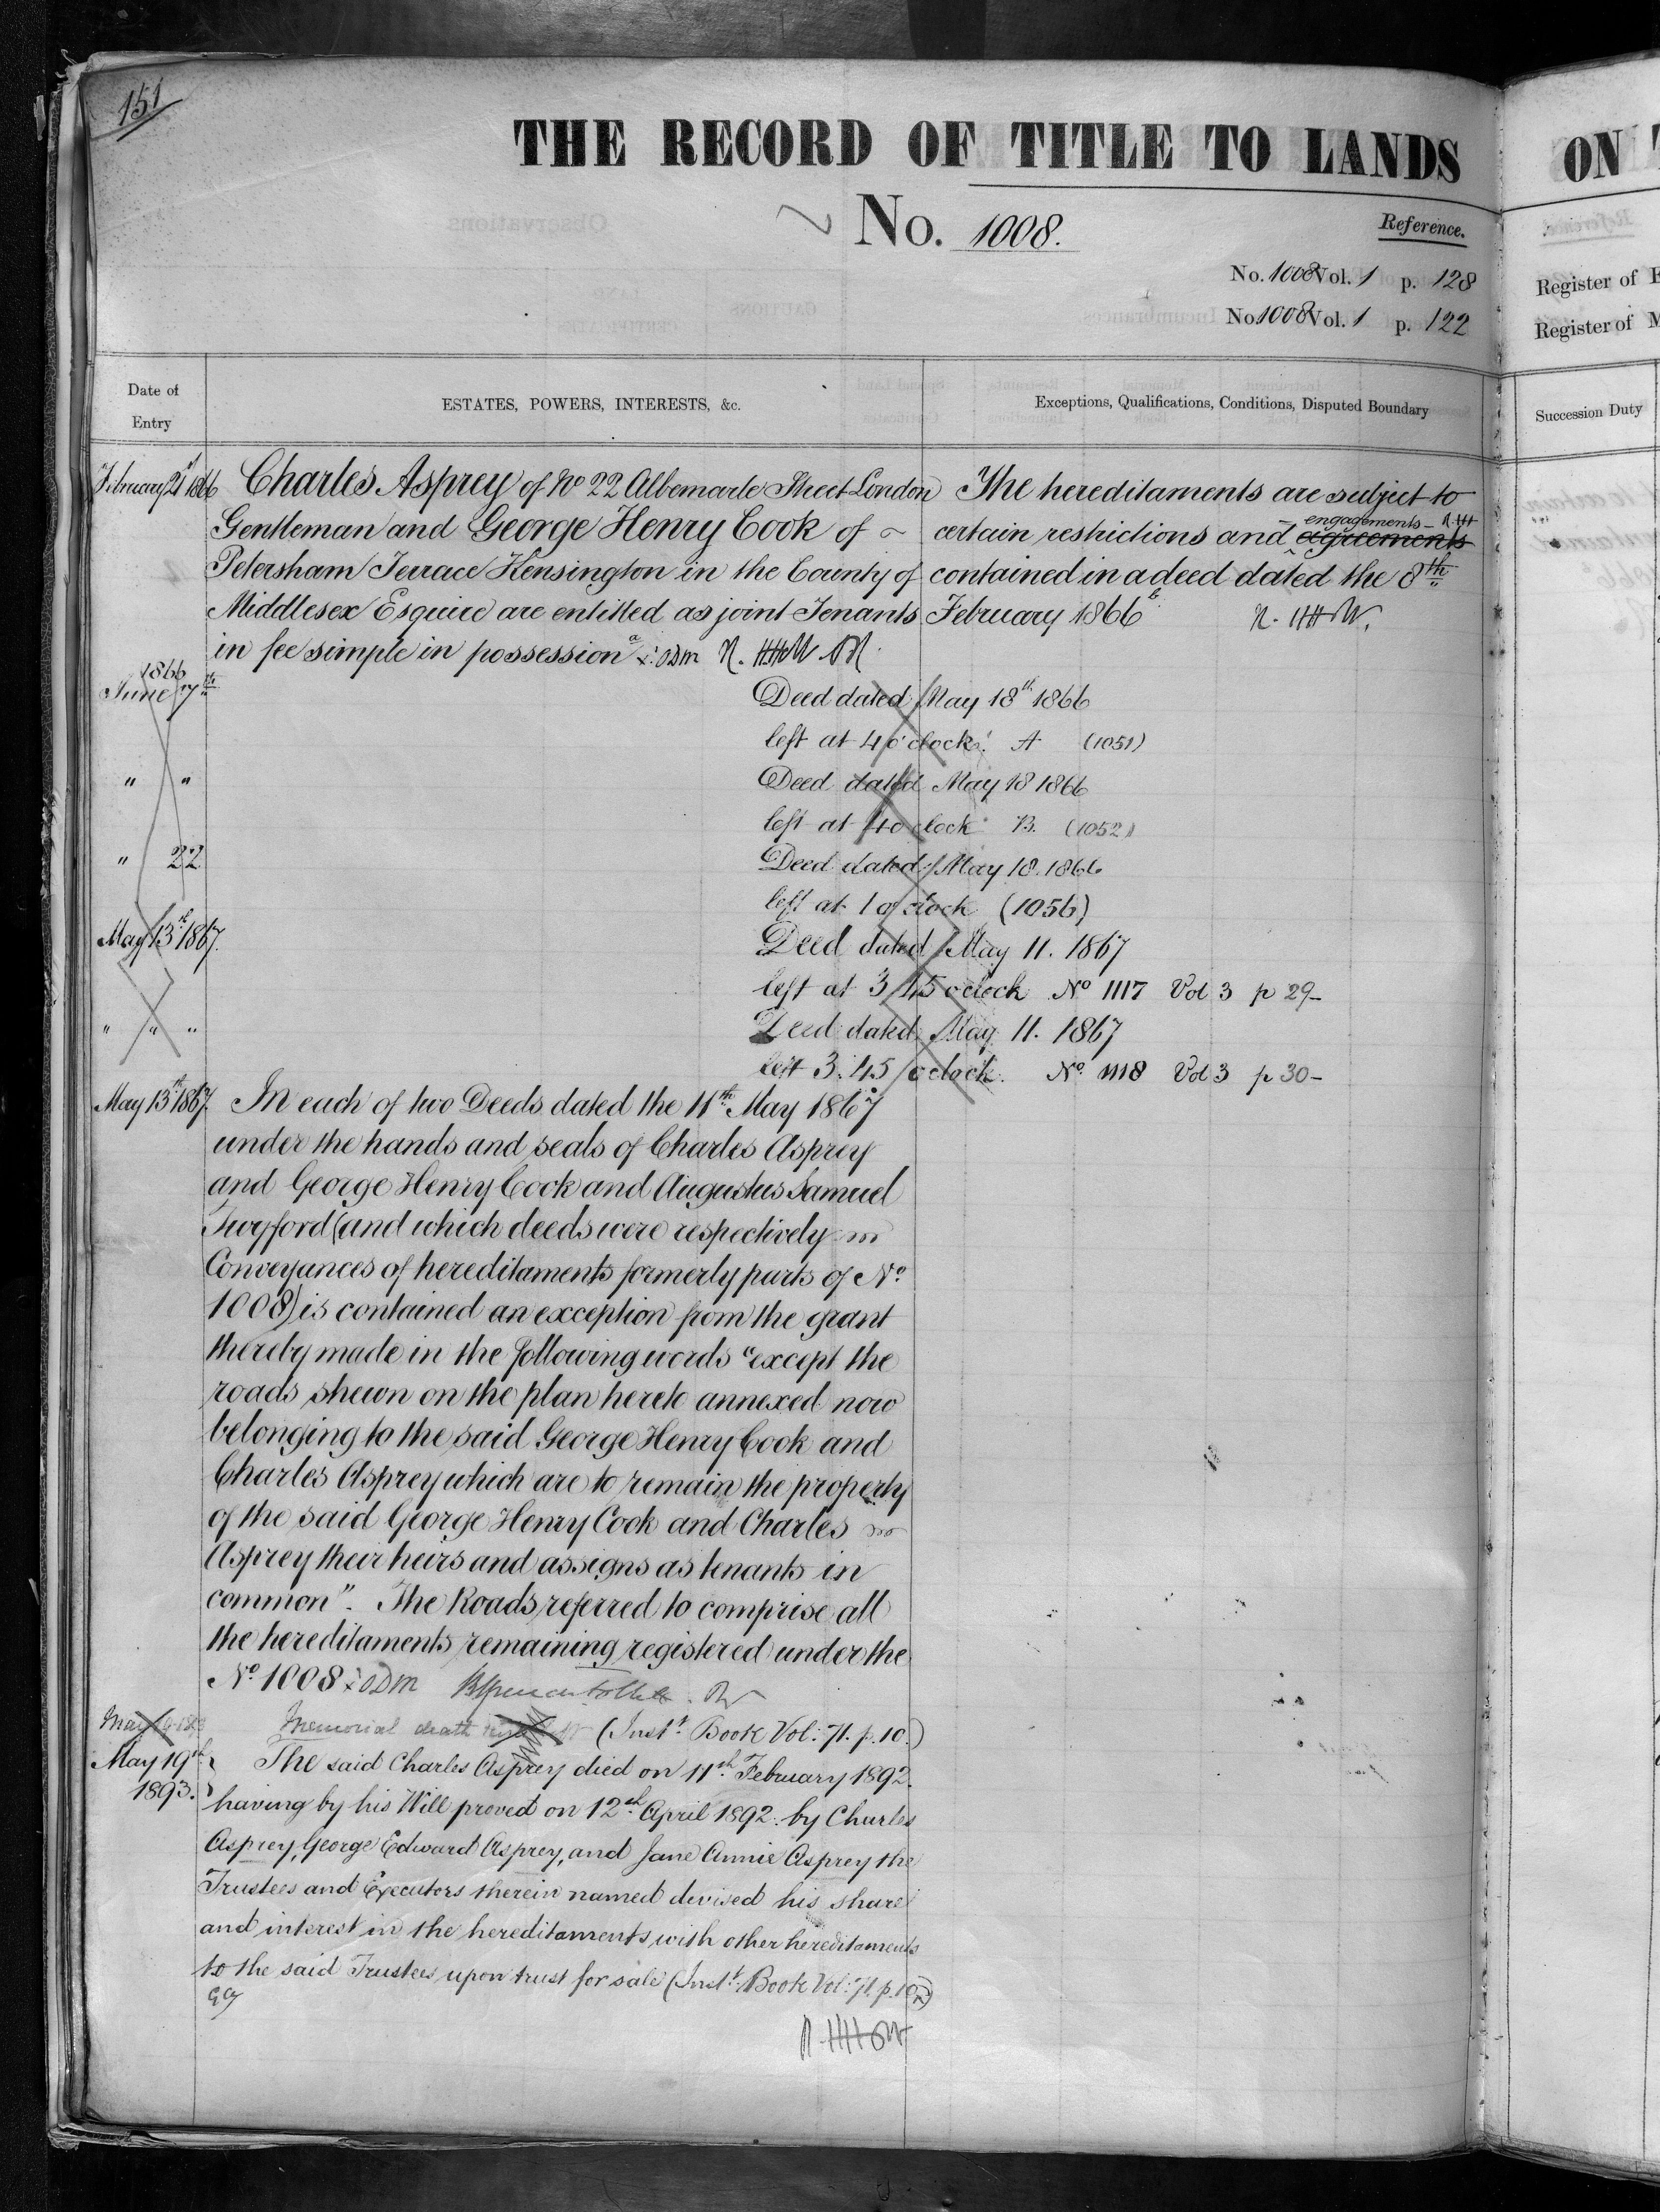 151
THE RECORD OF TITLE TO LANDS
No. 1008.
Reference.
No. 1008 Vol. 1 p. 128
No 1008 Vol. 1 p. 122
Date of Entry
ESTATES, POWERS, INTERESTS, &c.
Exceptions, Qualifications, Conditions, Disputed Boundary
February 21st 1866
Charles Asprey of No 22 Albemarle Street London
Gentleman and George Henry Cook of
Petersham Terrace Kensington in the County of
Middlesex Esquire are entitled as joint Tenants
in fee simple in possession
The hereditaments are subject to
engagements
certain restrictions and agreements
contained in a deed dated the 8th
February 1866
1866
June 7th
Deed dated May 18th 1866
left at 4 o'clock. A (1051)
" "
Deed dated May 18 1866
left at 4 o clock B. (1052)
" 22
Deed dated May 18. 1866
left at 1 o'clock (1056)
May 13th 1867.
Deed dated May 11. 1867
left at 3 45 o'clock No 1117 Vol 3 p 29-
" " "
Deed dated May 11. 1867
left 3.45 o'clock. No 1118 Vol 3 p 30-
May 13th 1867.
In each of two Deeds dated the 11th May 1867
under the hands and seals of Charles Asprey
and George Henry Cook and Augustus Samuel
Twyford (and which deeds were respectively
Conveyances of hereditaments formerly parts of No.
1008) is contained an exception from the grant
thereby made in the following words "except the
roads shewn on the plan hereto annexed now
belonging to the said George Henry Cook and
Charles Asprey which are to remain the property
of the said George Henry Cook and Charles
Asprey their heirs and assigns as tenants in
common". The Roads referred to comprise all
the hereditaments remaining registered under the
No. 1008
Memorial death (Inst. Book Vol: 71. p. 10.)
May 19th 1893.
The said Charles Asprey died on 11th February 1892.
having by his Will proved on 12th April 1892. by Charles
Asprey, George Edward Asprey, and Jane Annie Asprey the
Trustees and Executors therein named devised his share
and interest in the hereditaments with other hereditaments
to the said Trustees upon trust for sale (Inst. Book Vol: 71. p. 10)
ON
Register of
Register of
Succession Duty